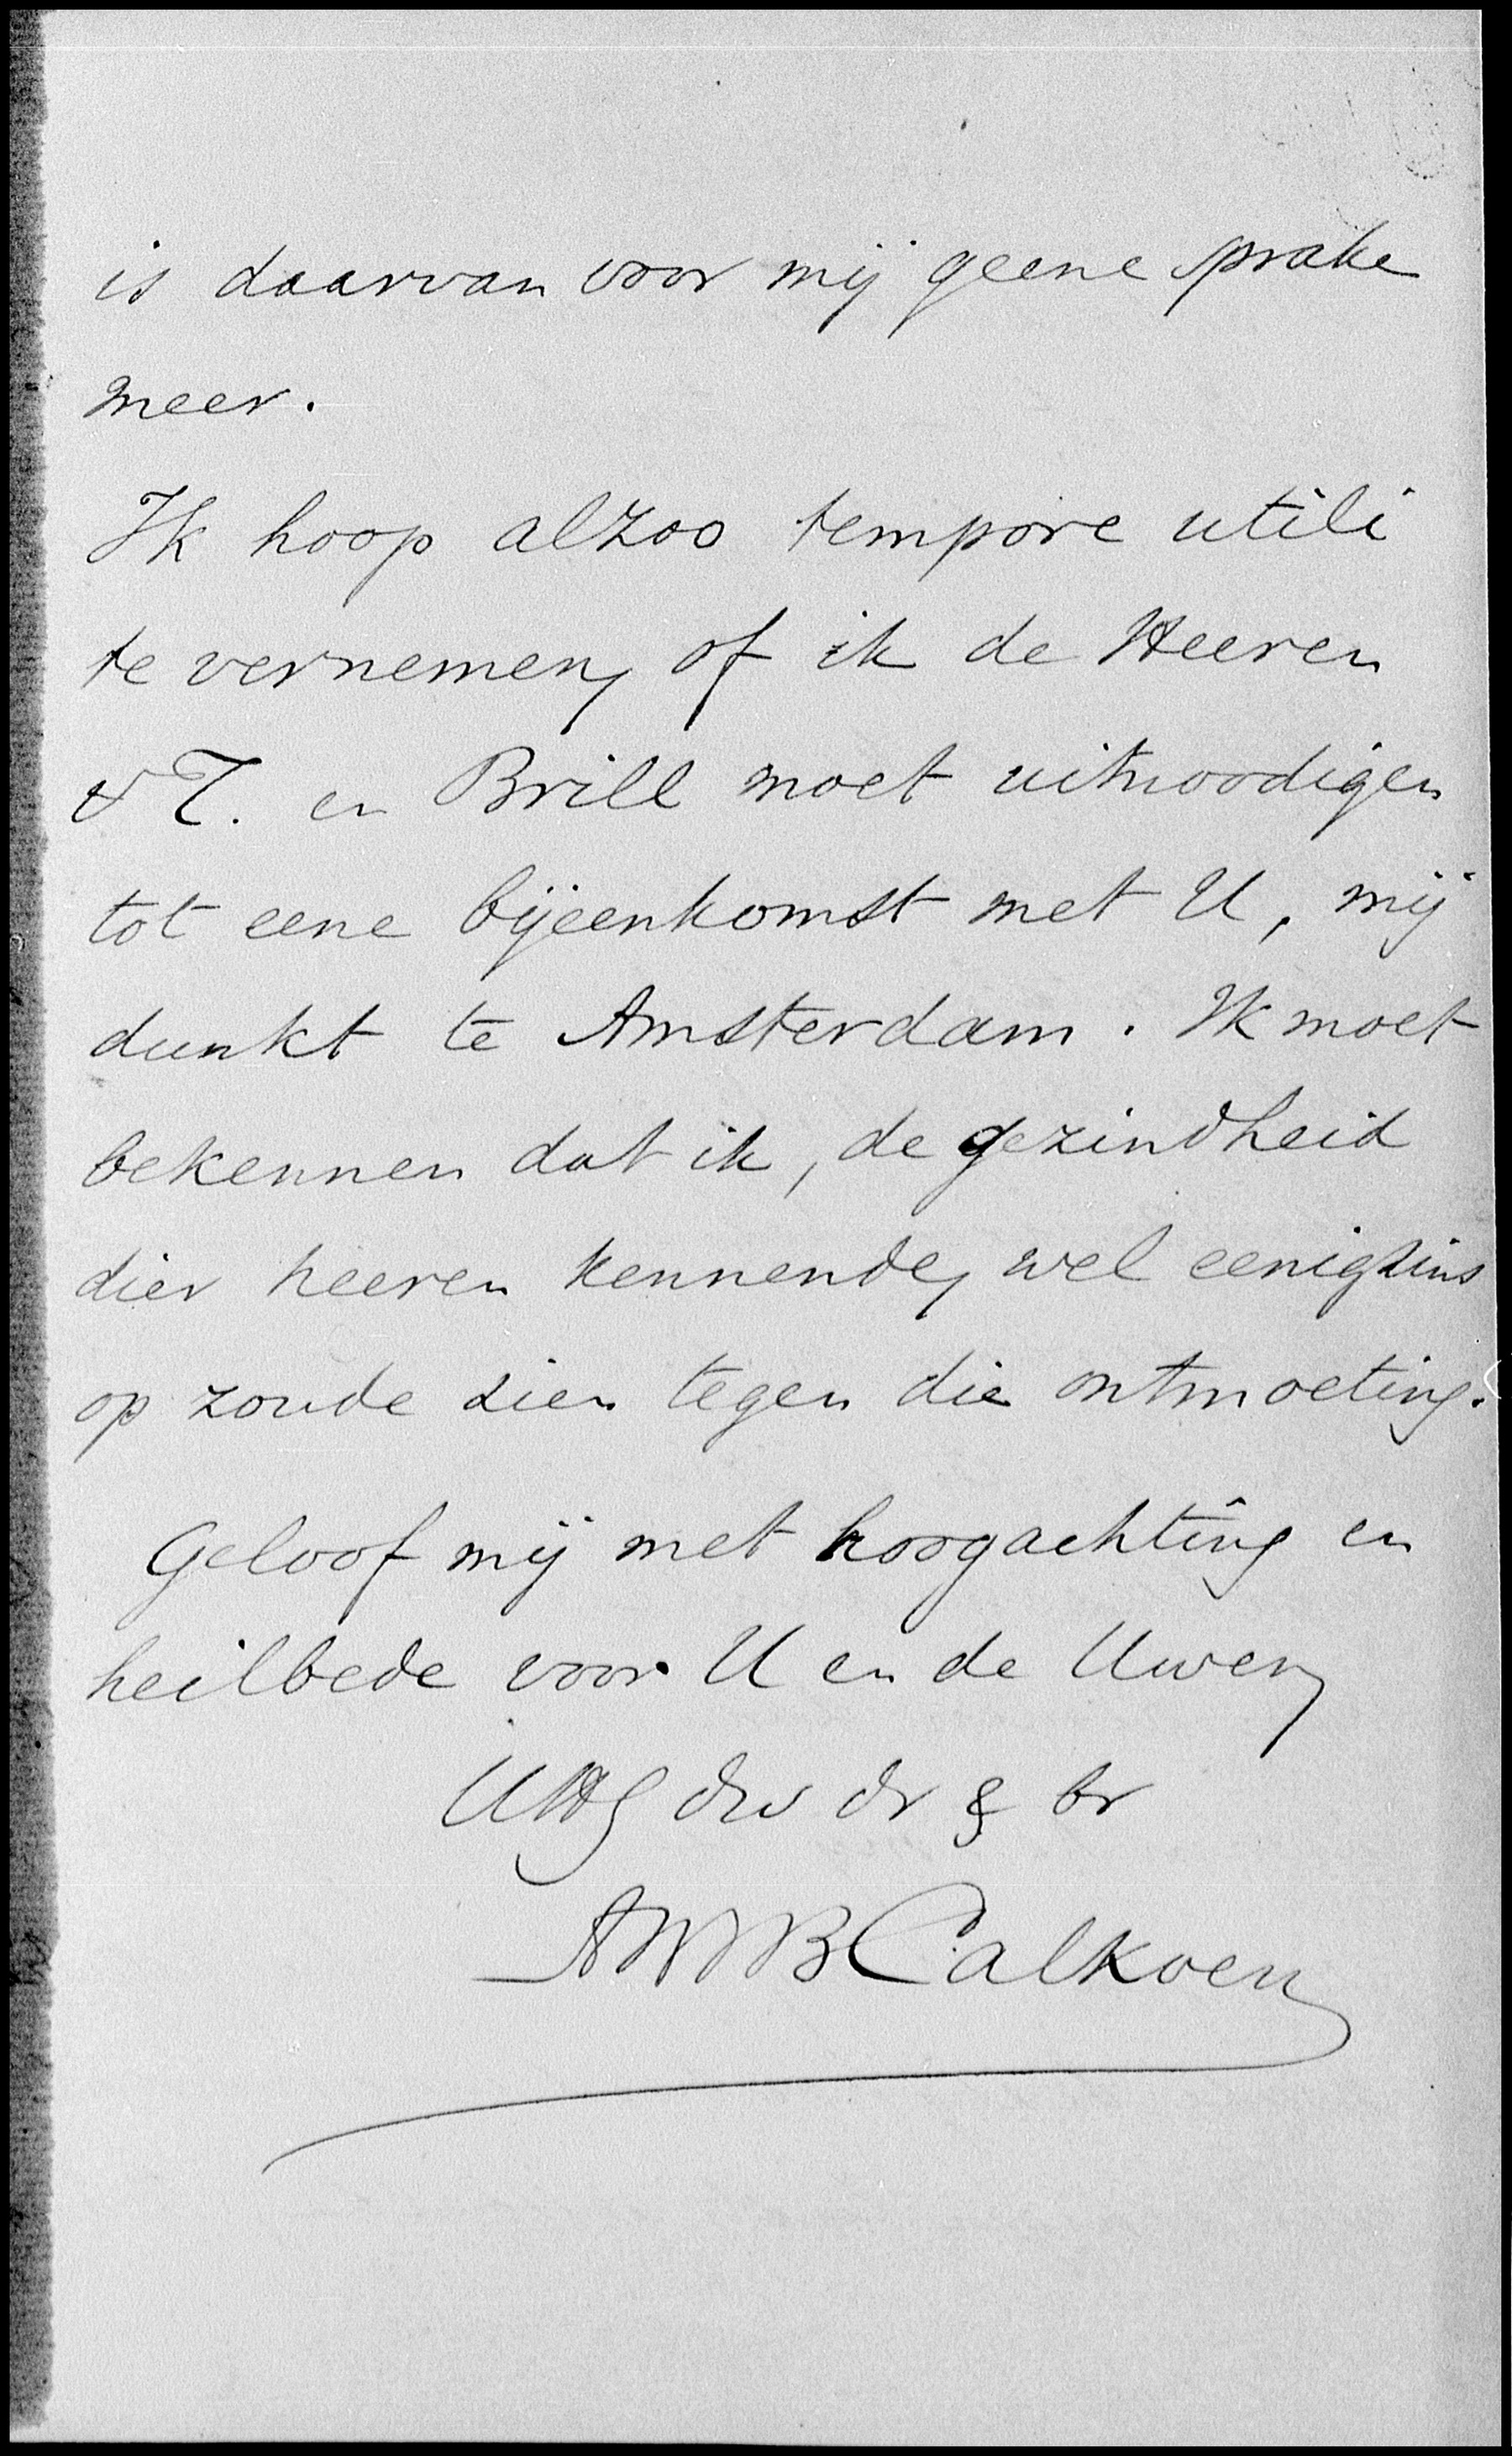 is daarvan voor mij geene sprake
meer.
Ik hoop alzoo tempore utili
te vernemen, of ik de Heeren
v T. en Brill moet uitnoodigen
tot eene bijeenkomst met U, mij
dunkt te Amsterdam. Ik moet
bekennen dat ik, de gezindheid
dier heeren kennende, wel eenigzins
op zoude zien tegen die ontmoeting.
Geloof mij met hoogachting en
heilbede voor U en de Uwen,
UHG dw dr & br
AWVBCalkoen